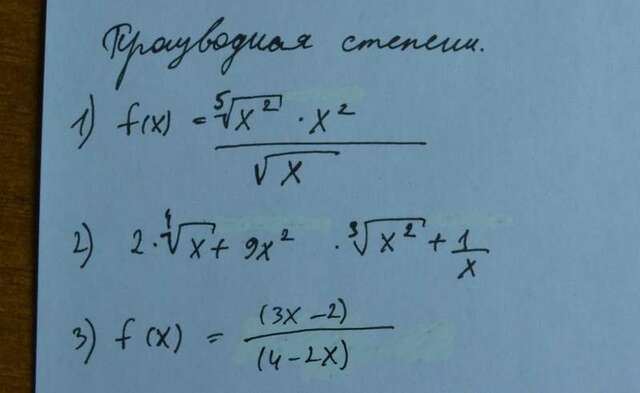 Производная степени.
1) f(x) = ⁵√x² · x² / √x
2) 2·⁴√x + 9x² · ³√x² + 1/x
3) f(x) = (3x-2) / (4-2x)